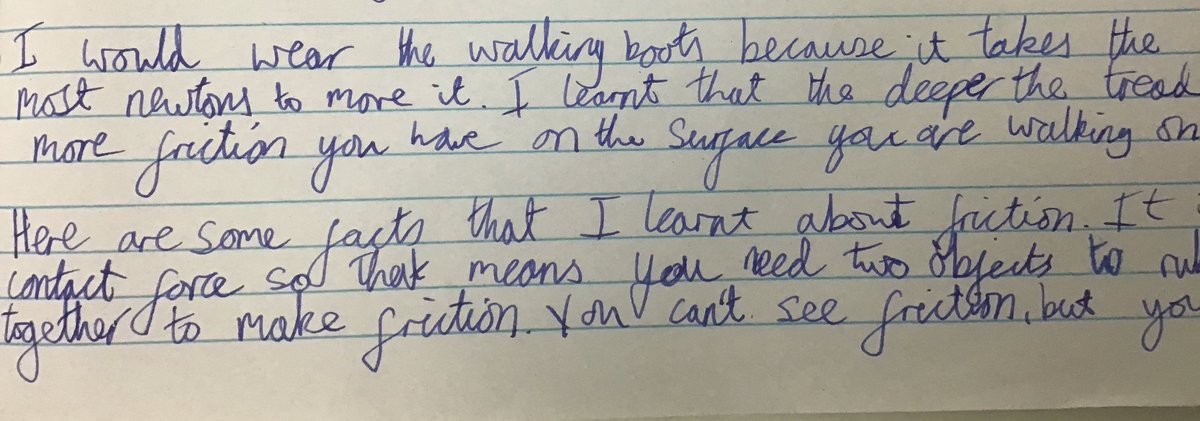 I would wear the walking boots because it takes the
most newtons to move it. I learnt that the deeper the tread
more friction you have on the surface you are walking on
Here are some facts that I learnt about friction. It
contact force so that means you need two objects to rub
together to make friction. You can't see friction, but you